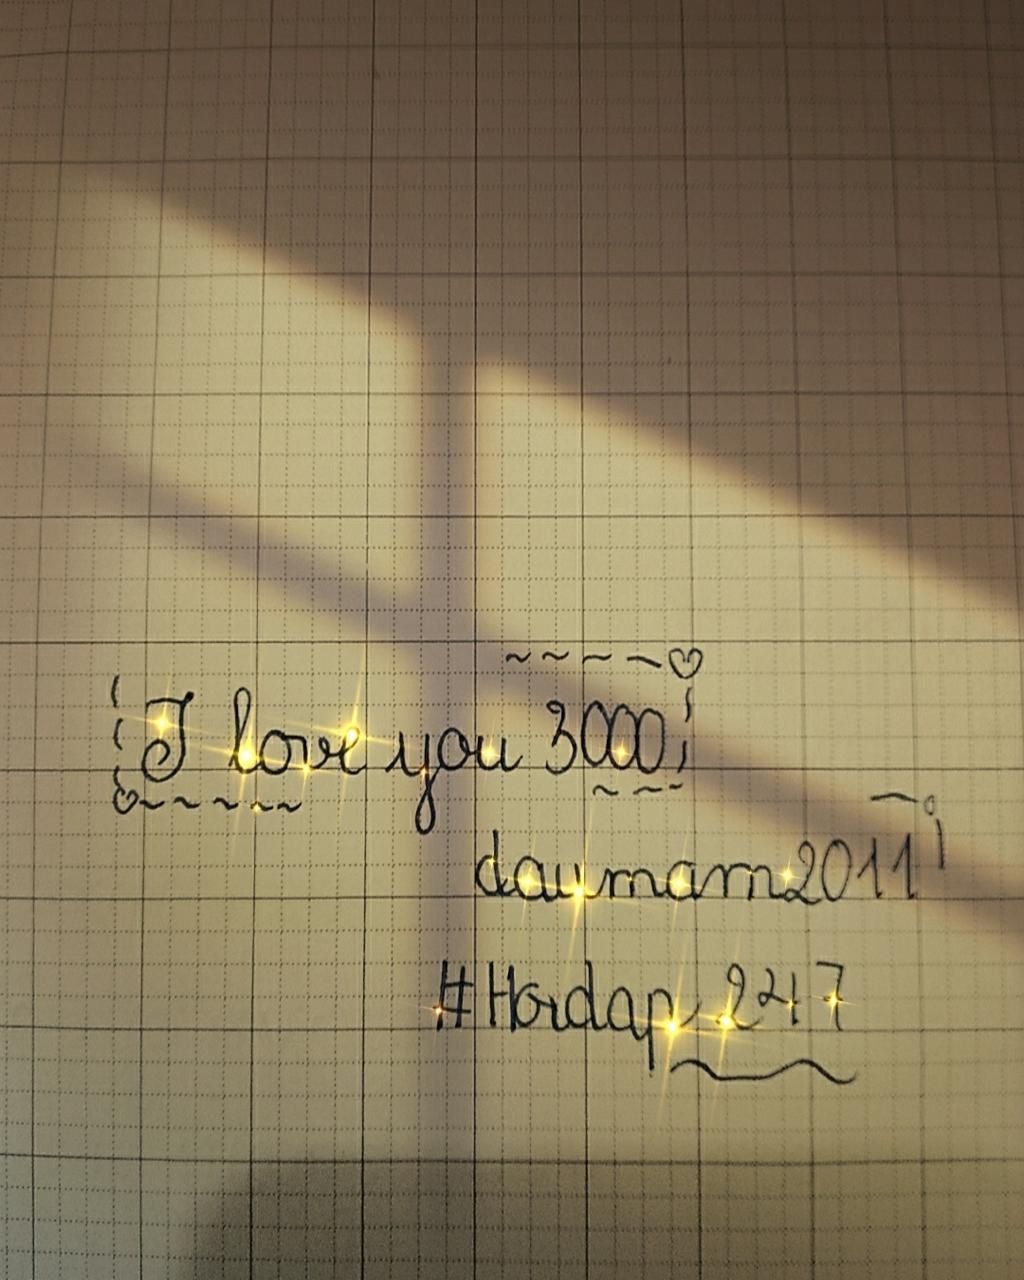 I love you 3000
daumam2011
#Hoidap 247